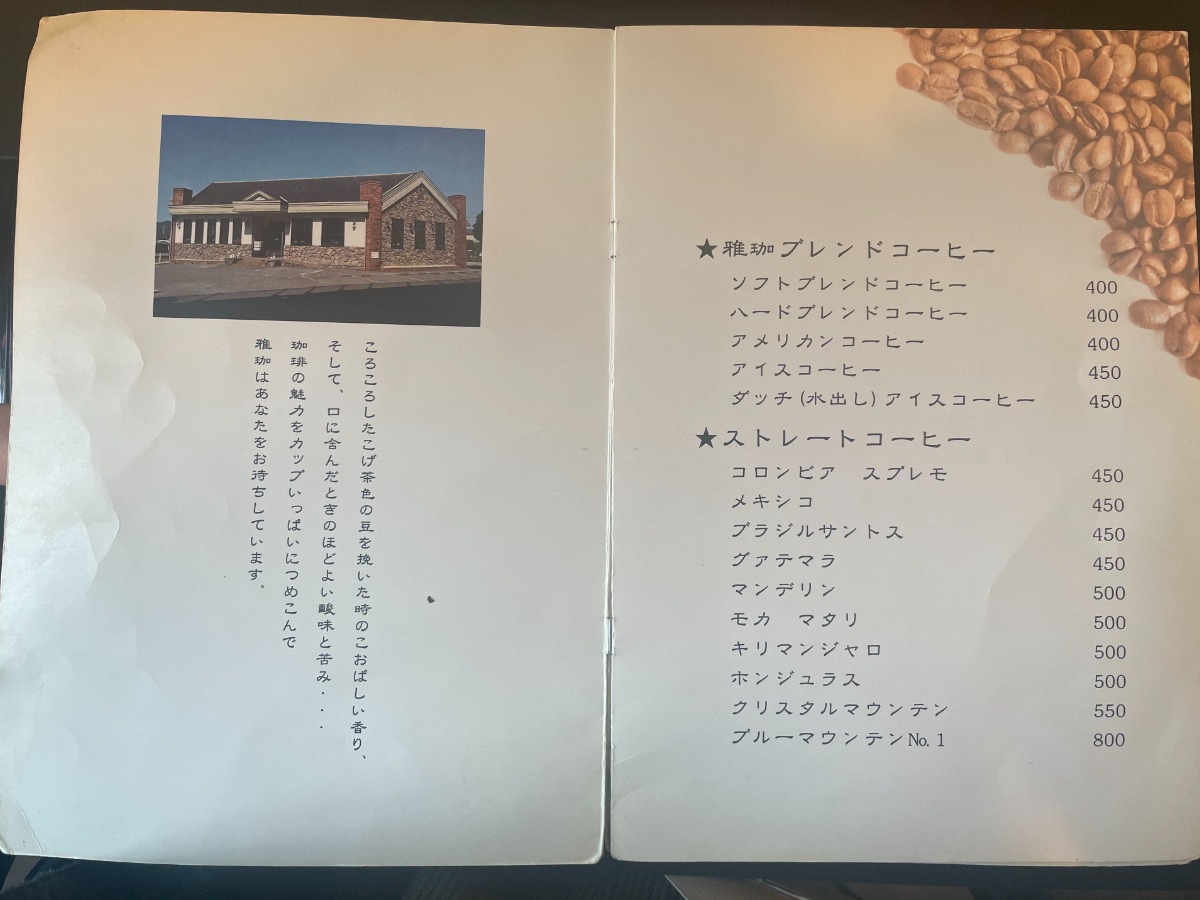 ころころしたこげ茶色の豆を挽いた時のこおばしい香り、
そして、口に含んだときのほどよい酸味と苦み・・・
珈琲の魅力をカップいっぱいにつめこんで
雅珈はあなたをお待ちしています。
★雅珈ブレンドコーヒー
ソフトブレンドコーヒー 400
ハードブレンドコーヒー 400
アメリカンコーヒー 400
アイスコーヒー 450
ダッチ(水出し)アイスコーヒー 450
★ストレートコーヒー
コロンビア　スプレモ 450
メキシコ 450
ブラジルサントス 450
グァテマラ 450
マンデリン 500
モカ　マタリ 500
キリマンジャロ 500
ホンジュラス 500
クリスタルマウンテン 550
ブルーマウンテンNo. 1 800